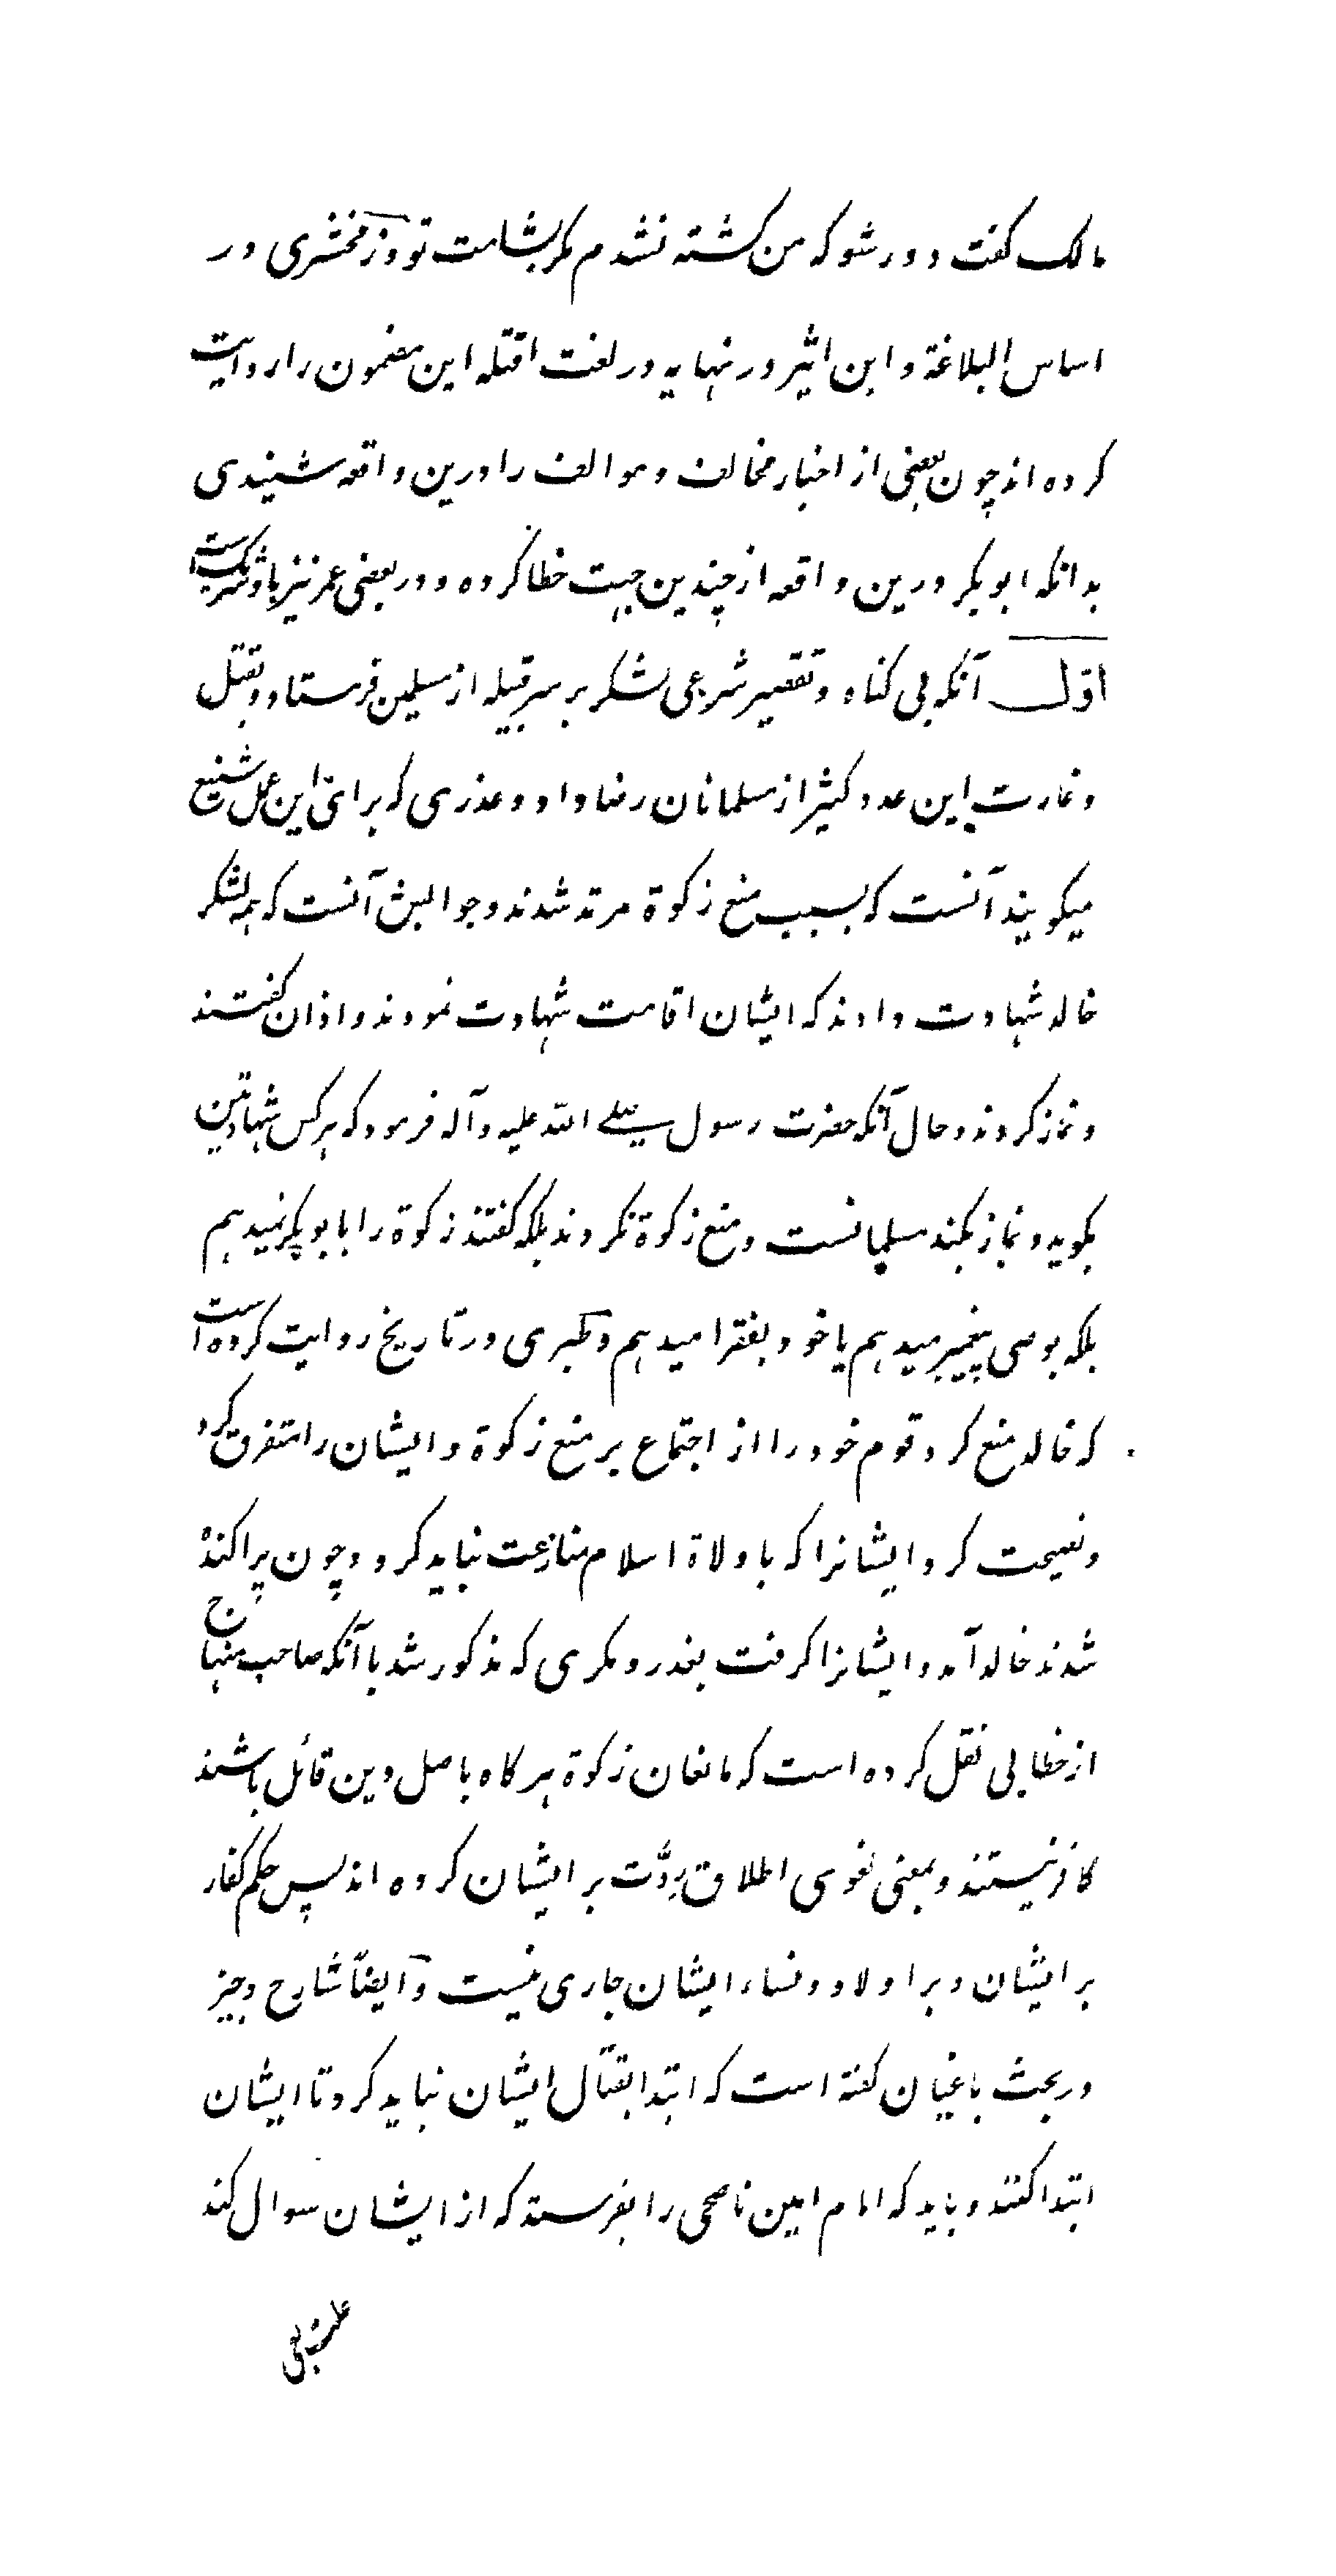 مالک گفت دور شو که من کشته نشدم مگر بشامت تو و زمخشری در
اساس البلاغة و ابن اثیر در نهایه در لغت اقتله این مضمون را روایت
کرده اند چون بعضی از اخبار مخالف و موالف را درین واقعه شنیدی
بدانکه ابوبکر درین واقعه از چندین جهت خطا کرده و در بعضی عمر نیز با او شریک است
اوّل آنکه بی گناه و تقصیر شرعی لشکر بر سر قبیله از مسلمین فرستاد و بقتل
و غارت این عدد کثیر از مسلمانان رضا داد و عذری که برای این عمل شنیع
میگویند آنست که بسبب منع زکوة مرتد شدند و جوابش آنست که همه لشکر
خالد شهادت دادند که ایشان اقامت شهادت نمودند و اذان گفتند
و نماز کردند و حال آنکه حضرت رسول صلی الله علیه و آله فرمود که هر کس شهادتین
بگوید و نماز بکند مسلمانست و منع زکوة نکردند بلکه گفتند زکوة را بابوبکر نمیدهیم
بلکه بوصی پیغمبر میدهیم یا خود بفقرا میدهیم و طبری در تاریخ روایت کرده است
که خالد منع کرد قوم خود را از اجتماع بر منع زکوة و ایشان را متفرق کرد
و نصیحت کرد ایشانرا که با ولاة اسلام منازعت نباید کرد و چون پراکنده
شدند خالد آمد و ایشانرا گرفت بغدر و مکری که مذکور شد با آنکه صاحب منهاج
از خطابی نقل کرده است که مانعان زکوة هرگاه باصل دین قائل باشند
کافر نیستند و بمعنی لغوی اطلاق رِدَّت بر ایشان کرده اند پس حکم کفار
بر ایشان و بر اولاد و نساء ایشان جاری نیست و ایضاً شارح وجیز
در بحث باغیان گفته است که ابتدا بقتال ایشان نباید کرد تا ایشان
ابتدا کنند و باید که امام امین ناصحی را بفرستد که از ایشان سوال کند